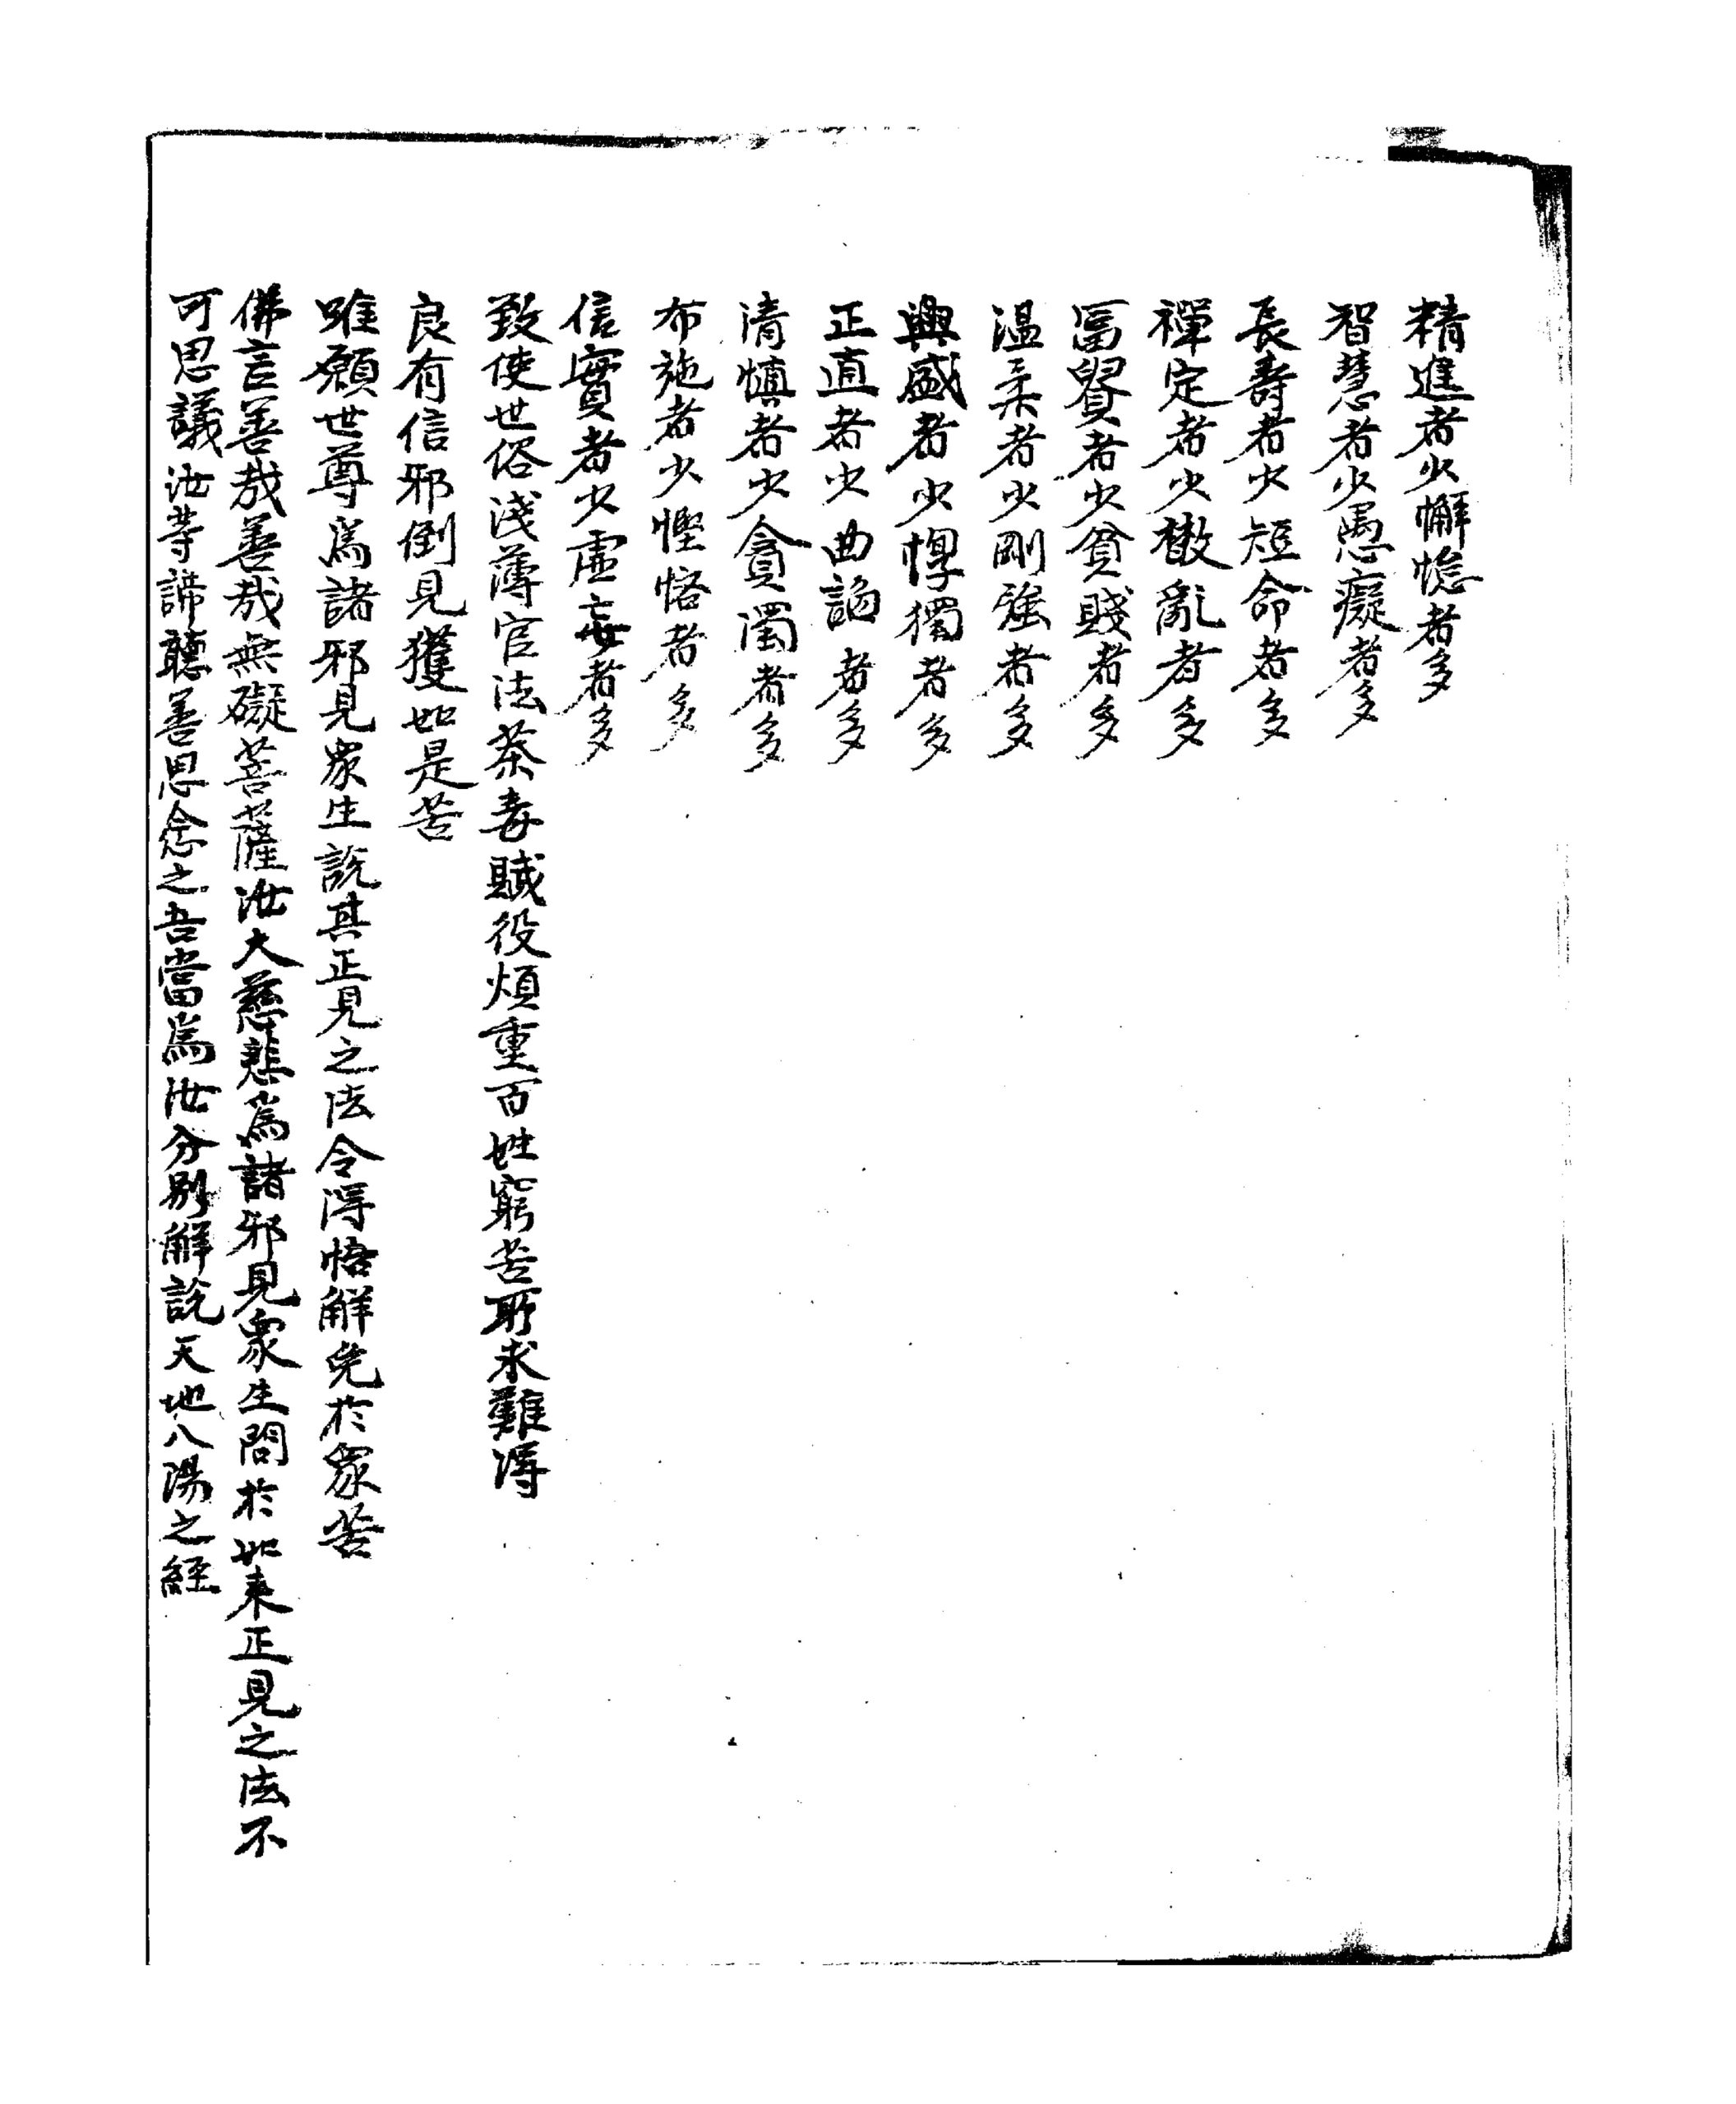 精進者少懈怠者多
智慧者少愚癡者多
長壽者少短命者多
禪定者少散亂者多
冨貴者少貧賤者多
温柔者少剛强者多
興盛者少惸獨者多
正直者少曲諂者多
清慎者少貪濁者多
布施者少慳悋者多
信實者少虛妄者多
致使世俗淺薄官法荼毒賦役煩重百姓窮苦所求難得
良有信邪倒見獲如是苦
唯願世尊爲諸邪見衆生說其正見之法令得悟解免於衆苦
佛言善哉善哉無礙菩薩汝大慈悲爲諸邪見衆生問於如来正見之法不
可思議汝等諦聽善思念之吾當爲汝分別解說天地八陽之經